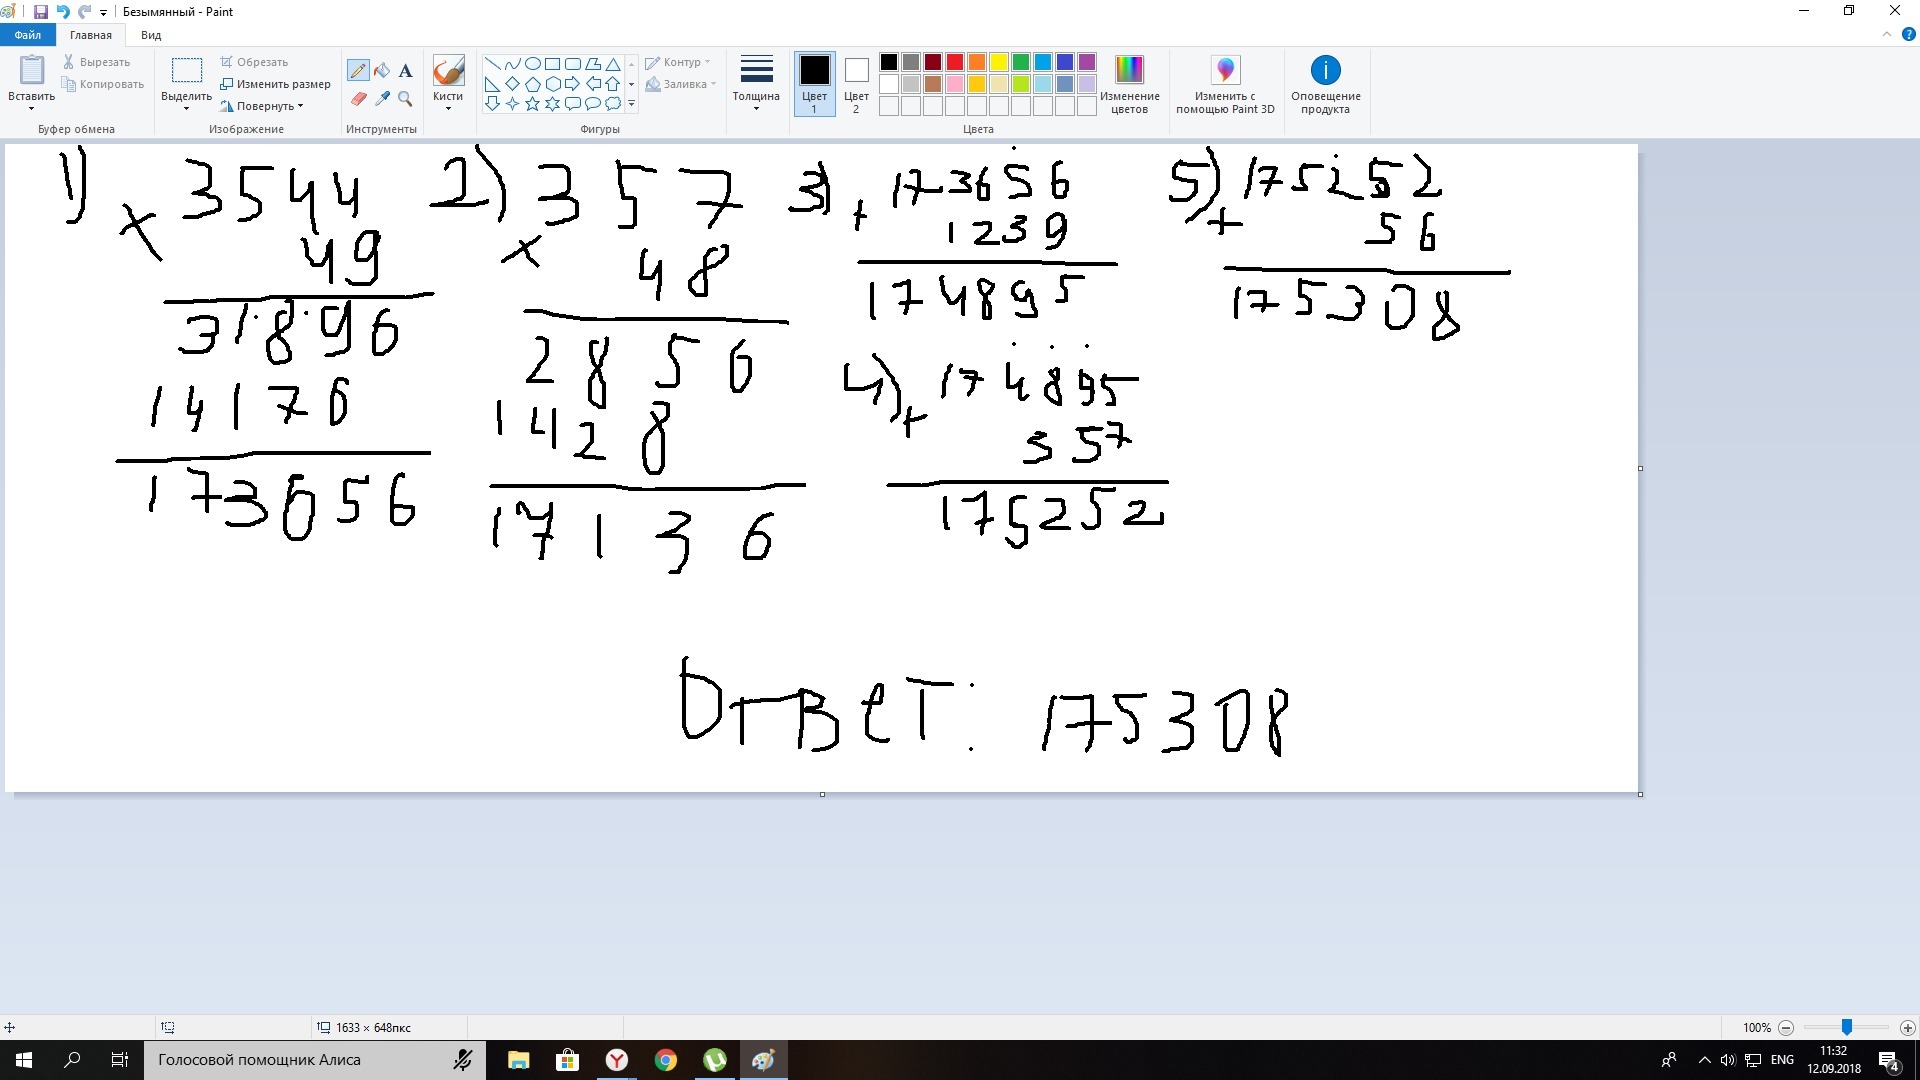 Безымянный - Paint
Файл Главная Вид
Вставить
Вырезать
Копировать
Буфер обмена
Выделить
Обрезать
Изменить размер
Повернуть
Изображение
A
Инструменты
Кисти
Контур
Заливка
Фигуры
Толщина
Цвет 1
Цвет 2
Изменение цветов
Цвета
Изменить с помощью Paint 3D
Оповещение продукта
1)
× 3544
49
31896
14176
173656
2) 357
× 48
2856
1428
17136
3) + 173656
1239
174895
4) + 174895
357
175252
5) + 175252
56
175308
Ответ: 175308
1633 × 648пкс
100%
Голосовой помощник Алиса
ENG
11:32
12.09.2018
4